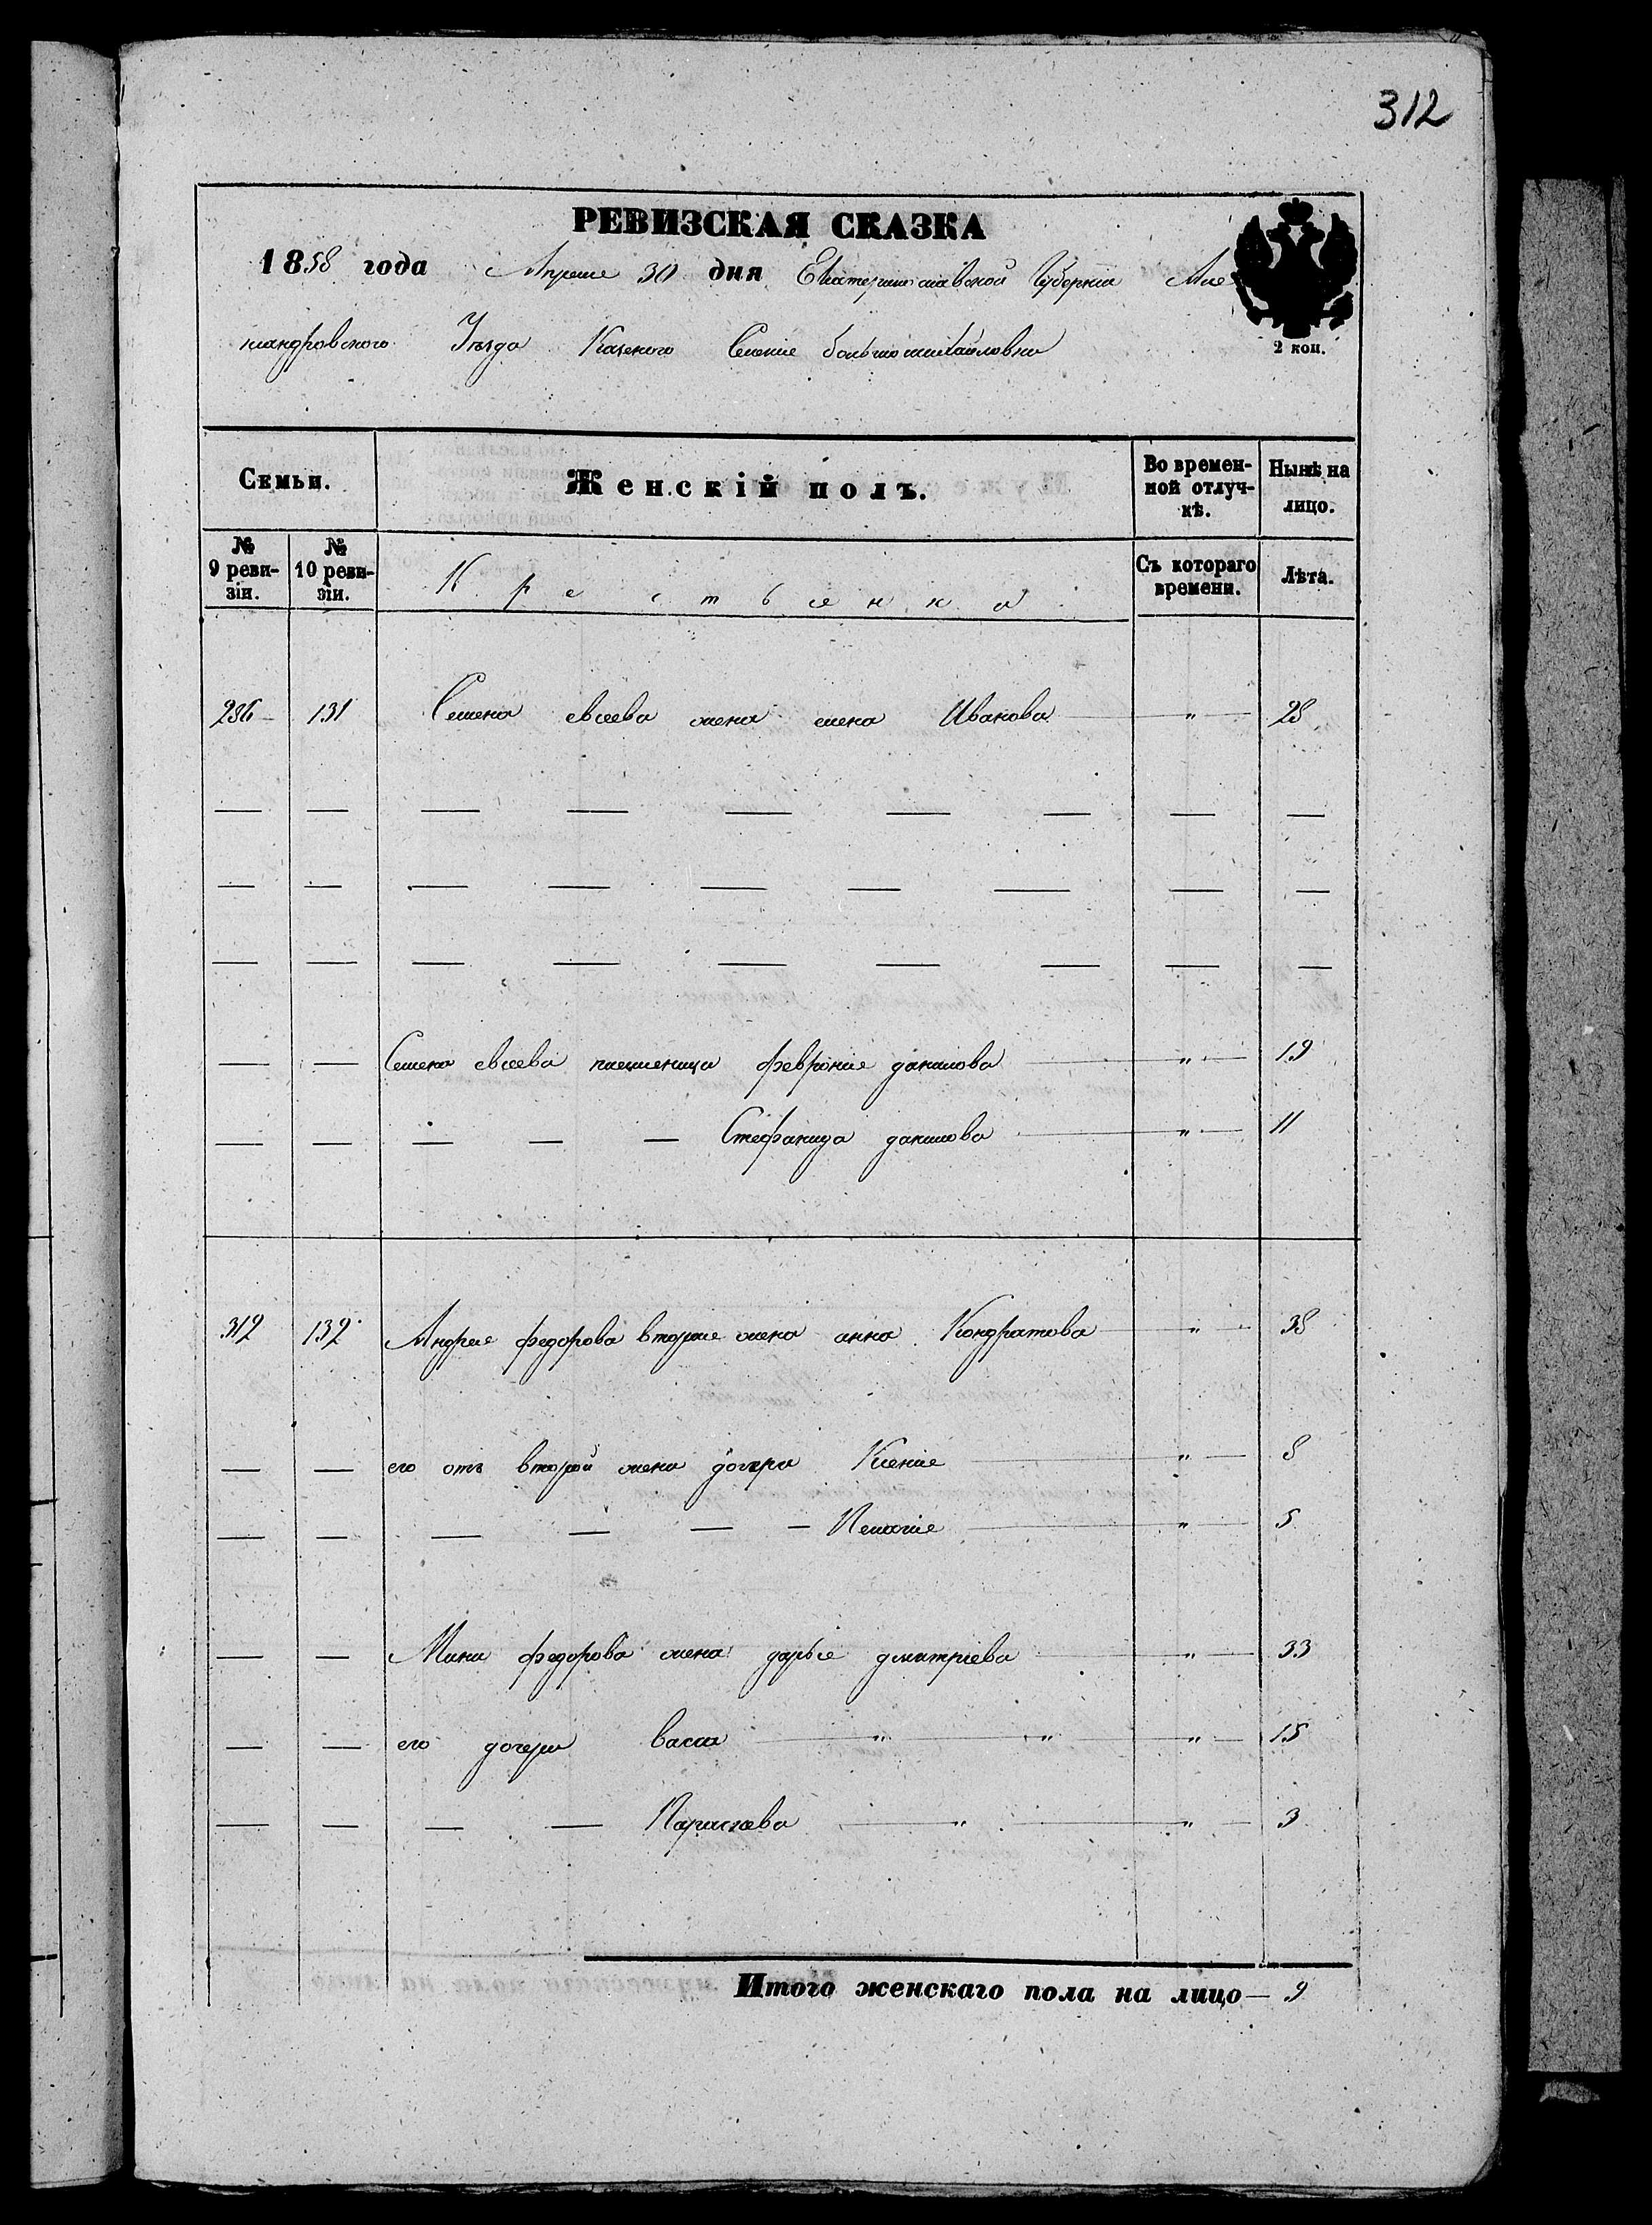 312
РЕВИЗСКАЯ СКАЗКА
1858 года Апреля 30 дня Екатеринославской Губернии Але
ксандровского Уезда Казеного Селенія большомихайловки
2 коп.
Семьи. Женскій полъ. Во времен-ной отлуч-кѣ. Нынѣ на лицо.
№ 9 реви-зіи. № 10 реви-зіи. Крестьянка Съ котораго времени. Лѣта.
236 131 Семена евсеева жена елена Иванова — " — 28
— — — — — — — — —
— — — — — — — — —
— — — — — — — — —
— — Семена евсеева племеница феврония данилова — " — 19
— — — — — Стефанида данилова — " — 11
312 132 Андрея федорова вторая жена анна Кондратова — " — 38
— — его отъ второй жены дочери Ксения — " — 8
— — — — — — Пелагия — " — 5
— — Мины федорова жена дарья дмитріева — " — 33
— — его дочери васса — " — " — " — 15
— — — — Параскева — " — " — 3
Итого женскаго пола на лицо — 9